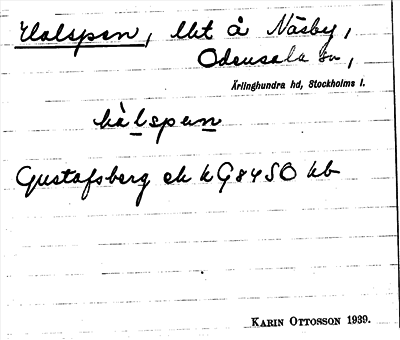 Halspen, lht å Näsby,
Odensala sn,
Ärlinghundra hd, Stockholms l.
hàlspen
Gustafsberg ek kG84SO kb
KARIN OTTOSSON 1939.